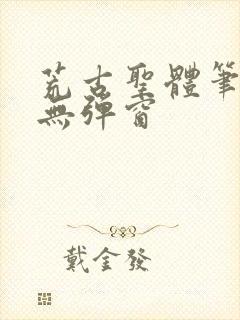 荒古聖體筆
無彈窗
戴金發